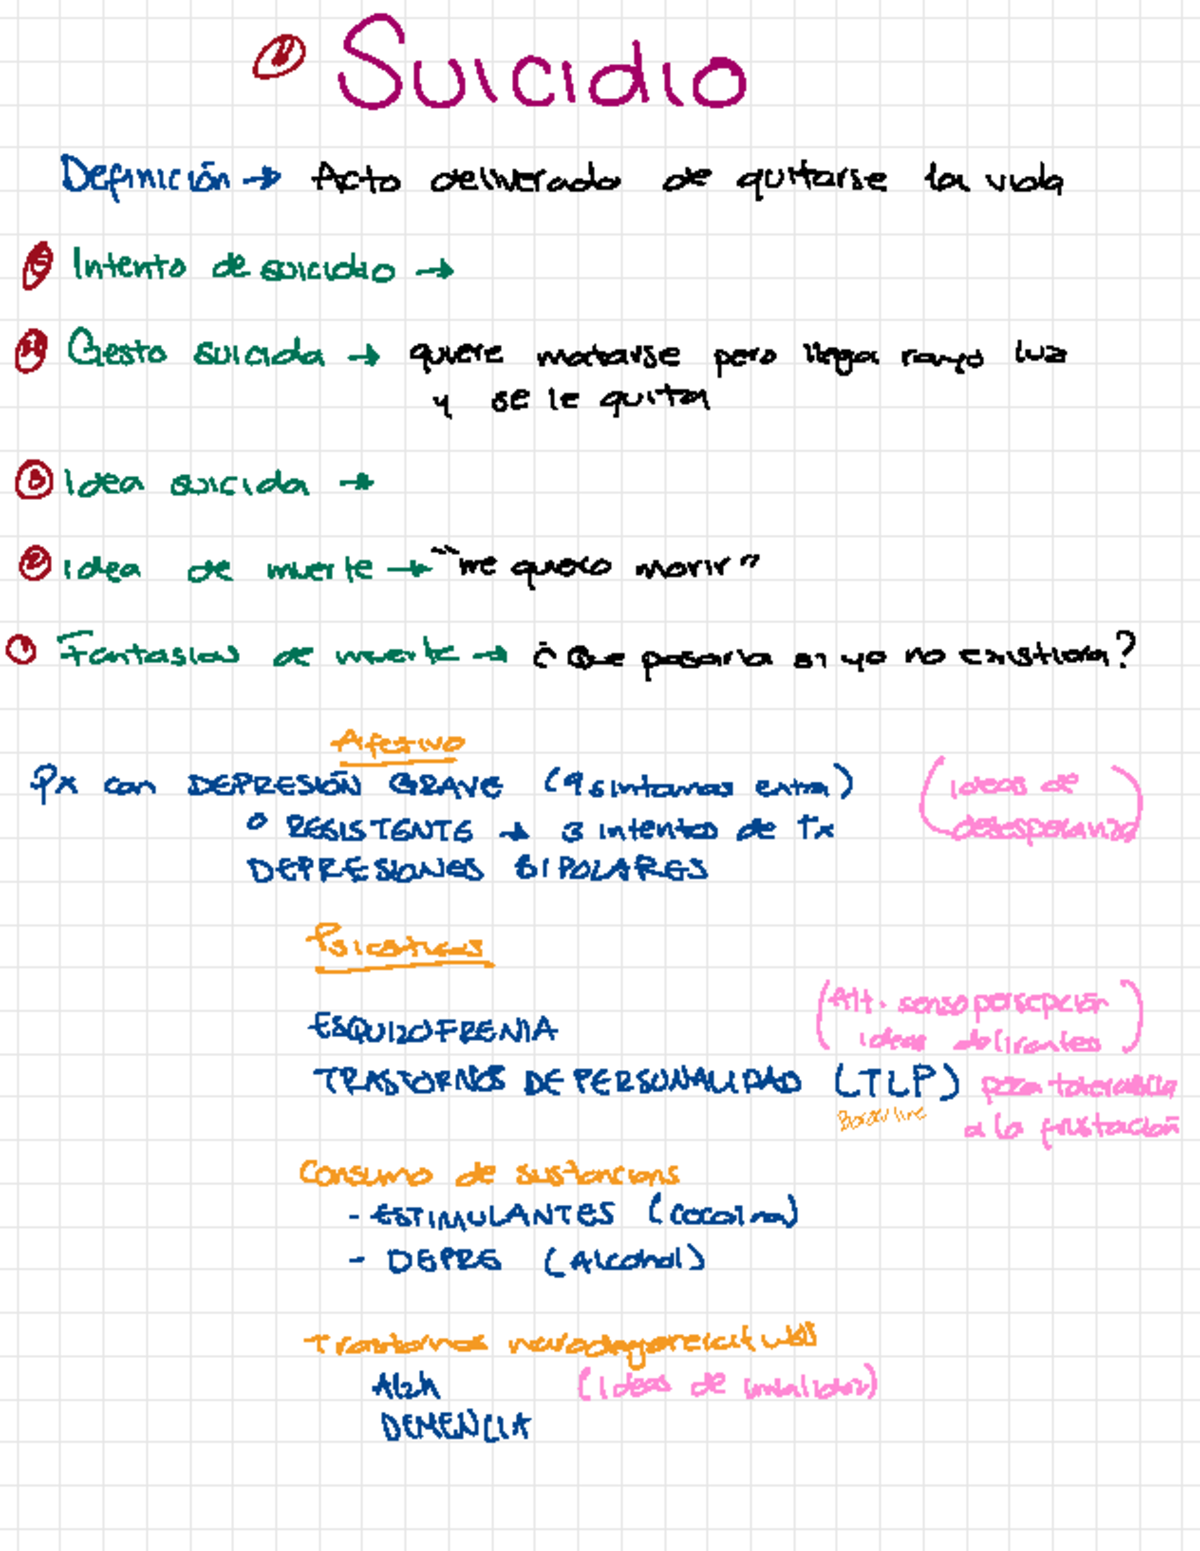 Suicidio
Definición → Acto deliverado de quitarse la vida
5 Intento de suicidio →
4 Gesto suicida → quiere matarse pero llega rayo luz
y se le quita
3 Idea suicida →
2 idea de muerte → "me quiero morir"
1 Fantasias de muerte → ¿Que pasaria si yo no existiera?
Afectivo
Px con DEPRESIÓN GRAVE (9 sintomas extra) (ideas de
o RESISTENTE → 3 intentos de Tx desesperanza)
DEPRESIONES BIPOLARES
Psicoticos
(Alt. sensopersepción
ESQUIZOFRENIA ideas delirantes)
TRASTORNOS DE PERSONALIDAD (TLP) poca tolerancia
Borderline a la frustación
Consumo de sustancias
- ESTIMULANTES (cocaina)
- DEPRE (Alcohol)
Trastornos
Alzh (Ideas de invalidez)
DEMENCIA